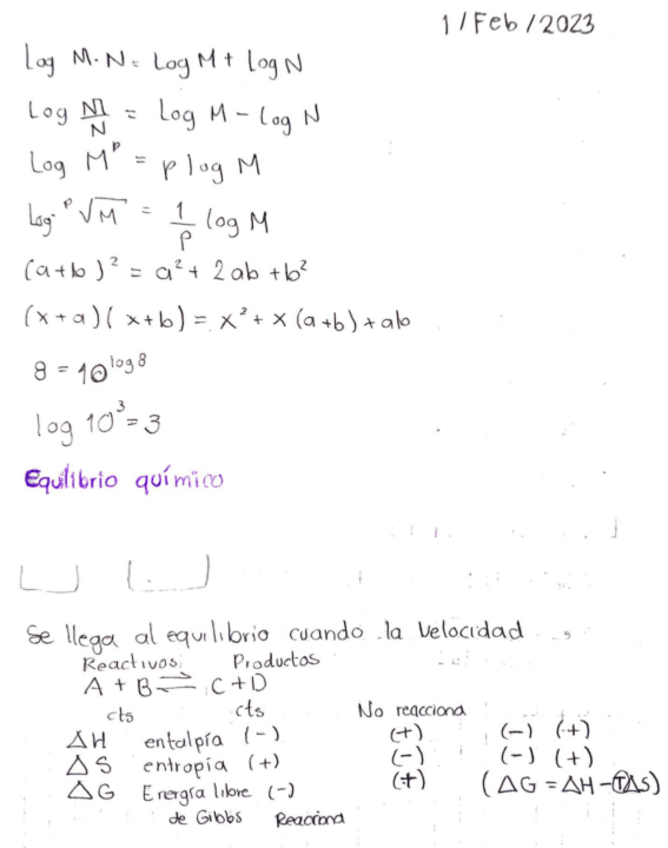 1/Feb/2023
Log M·N = Log M + log N
Log M/N = Log M - Log N
Log M^p = p log M
Log ^p√M = 1/p log M
(a+b)² = a² + 2ab + b²
(x+a)(x+b) = x² + x(a+b) + ab
8 = 10^log 8
log 10³ = 3
Equilibrio químico
Se llega al equilibrio cuando la velocidad
Reactivos Productos
A + B ⇌ C + D
cts cts No reacciona
ΔH entalpía (-) (+) (-) (+)
ΔS entropía (+) (-) (-) (+)
ΔG Energía libre (-) (+) (ΔG = ΔH - TΔS)
de Gibbs Reacciona